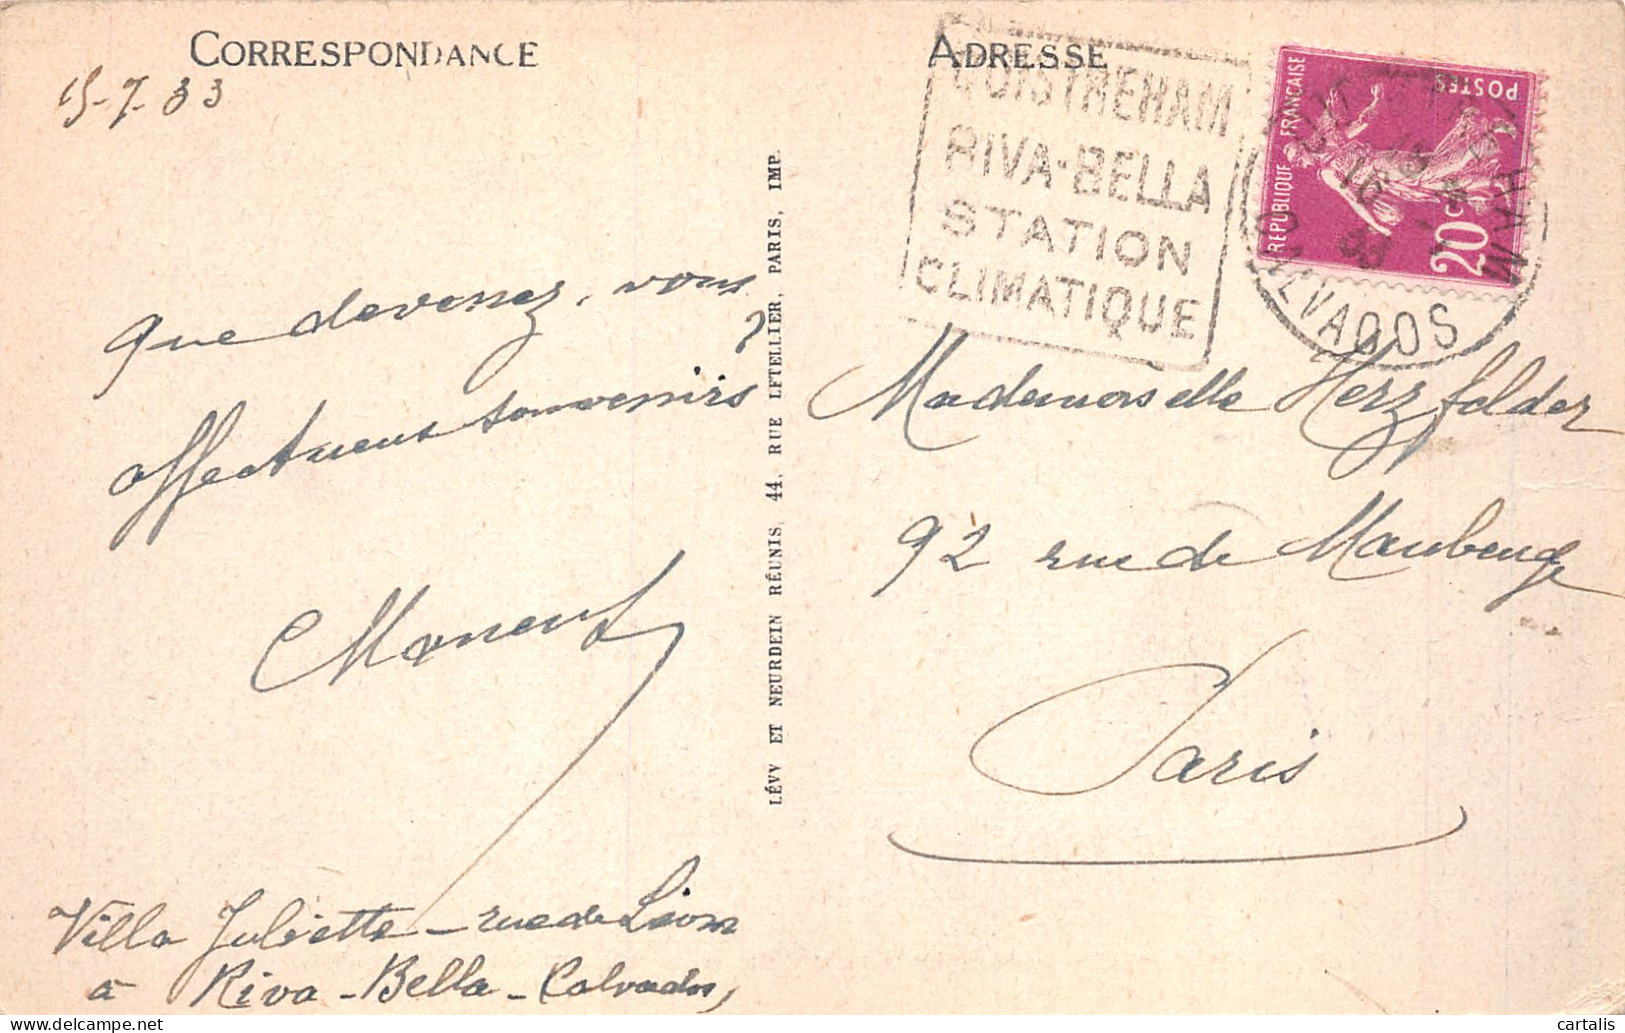 CORRESPONDANCE
15-7-33
que devenez, vous
?
affectueux souvenirs
Villa Juliette - rue de Lion
à Riva-Bella - Calvados,
LÉVY ET NEURDEIN RÉUNIS, 44, RUE LETELLIER, PARIS, IMP.
ADRESSE
OUISTREHAM
RIVA-BELLA
STATION
CLIMATIQUE
REPUBLIQUE FRANÇAISE
POSTES
20c
OUISTREHAM
16
CALVADOS
Mademoiselle Herzfelder
92 rue de Maubeuge
Paris
cartalis